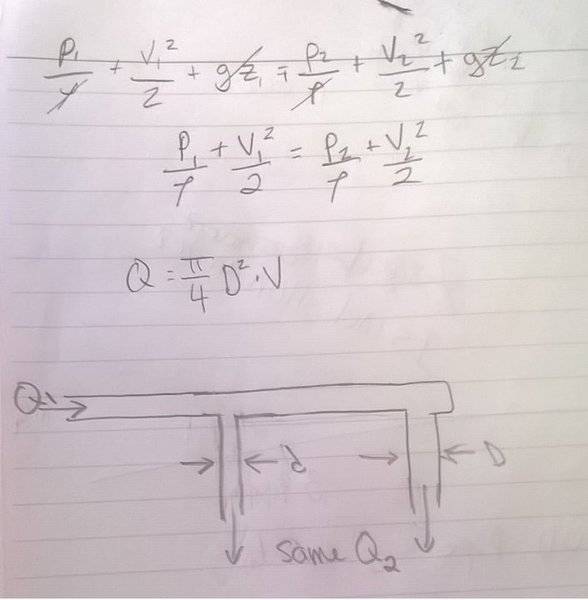 P₁/ρ + V₁²/2 + gz₁ = P₂/ρ + V₂²/2 + gz₂
P₁/ρ + V₁²/2 = P₂/ρ + V₂²/2
Q = π/4 D² · V
Q
d D
same Q₂